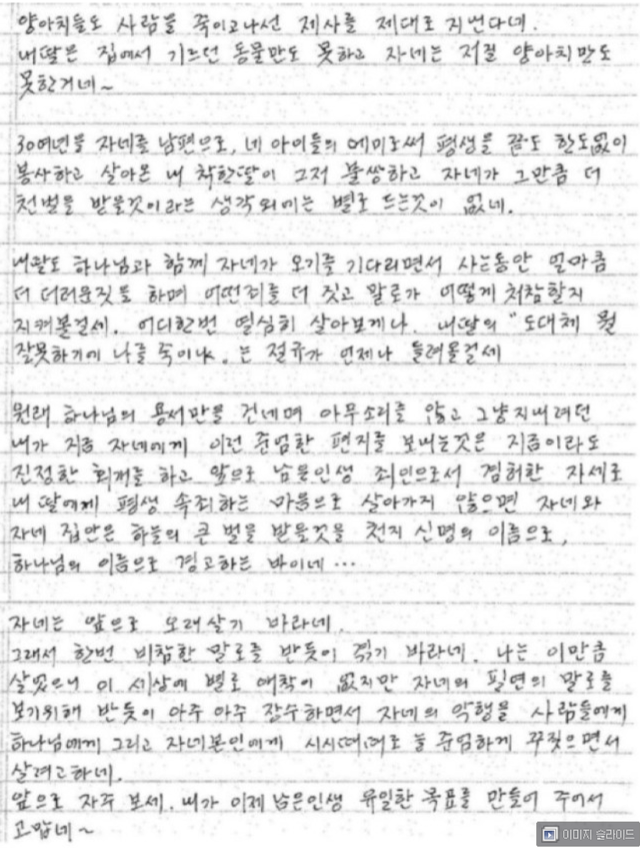 양아치들도 사람을 죽이고나선 제사를 제대로 지낸다네.
내딸은 집에서 기르던 동물만도 못하고 자네는 저질 양아치만도
못한거네~
30여년을 자네를 남편으로, 네 아이들의 에미로써 평생을 끝도 한도없이
봉사하고 살아온 내 착한딸이 그저 불쌍하고 자네가 그만큼 더
천벌을 받을것이라는 생각외에는 별로 드는것이 없네.
내딸도 하나님과 함께 자네가 오기를 기다리면서 사는동안 얼마큼
더 더러운짓을 하며 어떤죄를 더 짓고 말로가 어떻게 처참할지
지켜볼걸세. 어디한번 열심히 살아보게나. 내딸의 "도대체 뭘
잘못하기에 나를 죽이나. 는 절규가 언제나 들려올걸세
원래 하나님의 용서만을 건네며 아무소리를 않고 그냥지내려던
내가 지금 자네에게 이런 준엄한 편지를 보내는것은 지금이라도
진정한 회개를 하고 앞으로 남은인생 죄인으로서 겸허한 자세로
내 딸에게 평생 속죄하는 마음으로 살아가지 않으면 자네와
자네 집안은 하늘의 큰 벌을 받을것을 천지 신명의 이름으로,
하나님의 이름으로 경고하는 바이네...
자네는 앞으로 오래살기 바라네.
그래서 한번 비참한 말로를 반듯이 겪기 바라네. 나는 이만큼
살았으니 이 세상에 별로 애착이 없지만 자네의 필연의 말로를
보기위해 반듯이 아주 아주 장수하면서 자네의 악행을 사람들에게
하나님에게 그리고 자네본인에게 시시때때로 늘 준엄하게 꾸짖으면서
살려고하네.
앞으로 자주 보세. 내가 이제 남은인생 유일한 목표를 만들어 주어서
고맙네~
이미지 슬라이드